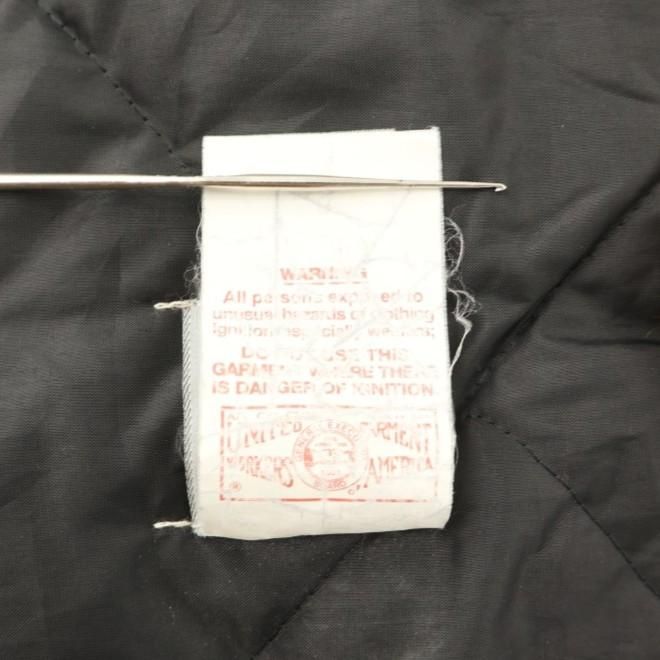 WARNING
All persons exposed to
unusual hazards of clothing
ignition, especially welders;
DO NOT USE THIS
GARMENT WHERE THERE
IS DANGER OF IGNITION
UNITED GARMENT
WORKERS OF AMERICA
®